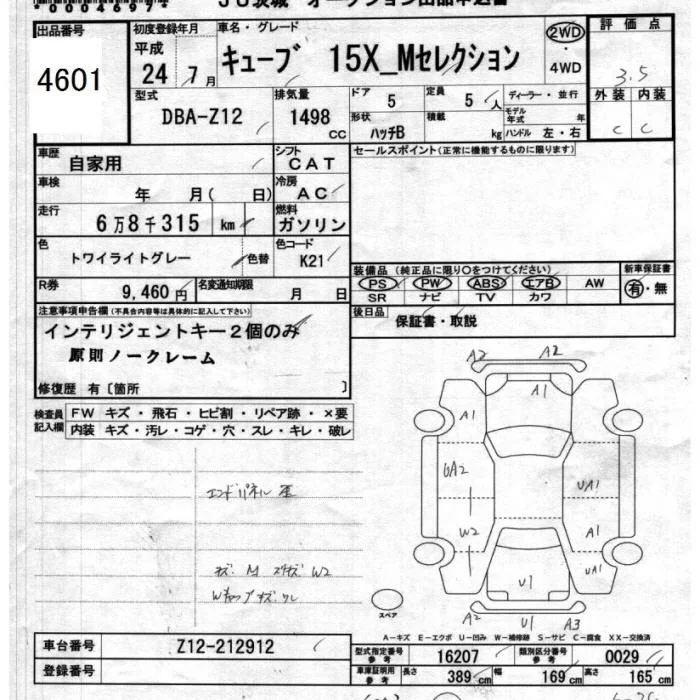 *0004697*
JU茨城 オークション出品申込書
出品番号
4601
初度登録年月
平成
24年 7月
車名・グレード
キューブ 15X_Mセレクション
2WD
・
4WD
評価点
3.5
外装 内装
C C
型式
DBA-Z12
排気量
1498
CC
ドア
5
定員
5人
ディーラー・並行
モデル年式 年
形状
ハッチB
積載
kg
ハンドル 左・右
車歴
自家用
シフト
CAT
セールスポイント(正常に機能するものに限ります)
車検
年 月( 日)
冷房
AC
走行
6万8千315 km
燃料
ガソリン
色
トワイライトグレー
色替
色コード
K21
R券
9,460円
名変通知期限
月 日
装備品 (純正品に限り○をつけてください)
PS PW ABS エアB AW
SR ナビ TV カワ
新車保証書
有・無
注意事項申告欄(不具合内容等は具体的に記入して下さい)
インテリジェントキー2個のみ
原則ノークレーム
修復歴 有〔箇所 〕
後日品
保証書・取説
検査員記入欄
FW キズ・飛石・ヒビ割・リペア跡・×要
内装 キズ・汚レ・コゲ・穴・スレ・キレ・破レ
エンドパネル 歪
A2 A2
A1
A1
UA1
W2 A1
UA1
U1
A2 U1 A3
スペア
A-キズ E-エクボ U-凹み W-補修跡 S-サビ C-腐食 XX-交換済
車台番号
Z12-212912
登録番号
型式指定番号
参考
16207
類別区分番号
参考
0029
車庫証明用
参考
長さ
389cm
幅
169cm
高さ
165cm